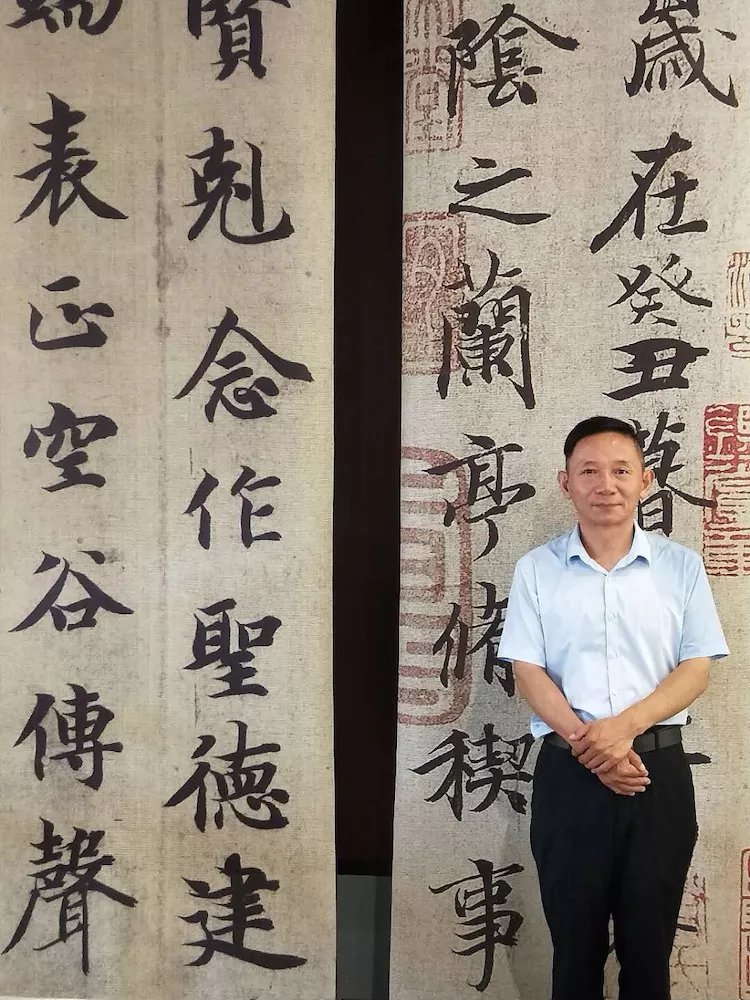 歲在癸丑暮
陰之蘭亭脩禊事
賢剋念作聖德建
端表正空谷傳聲